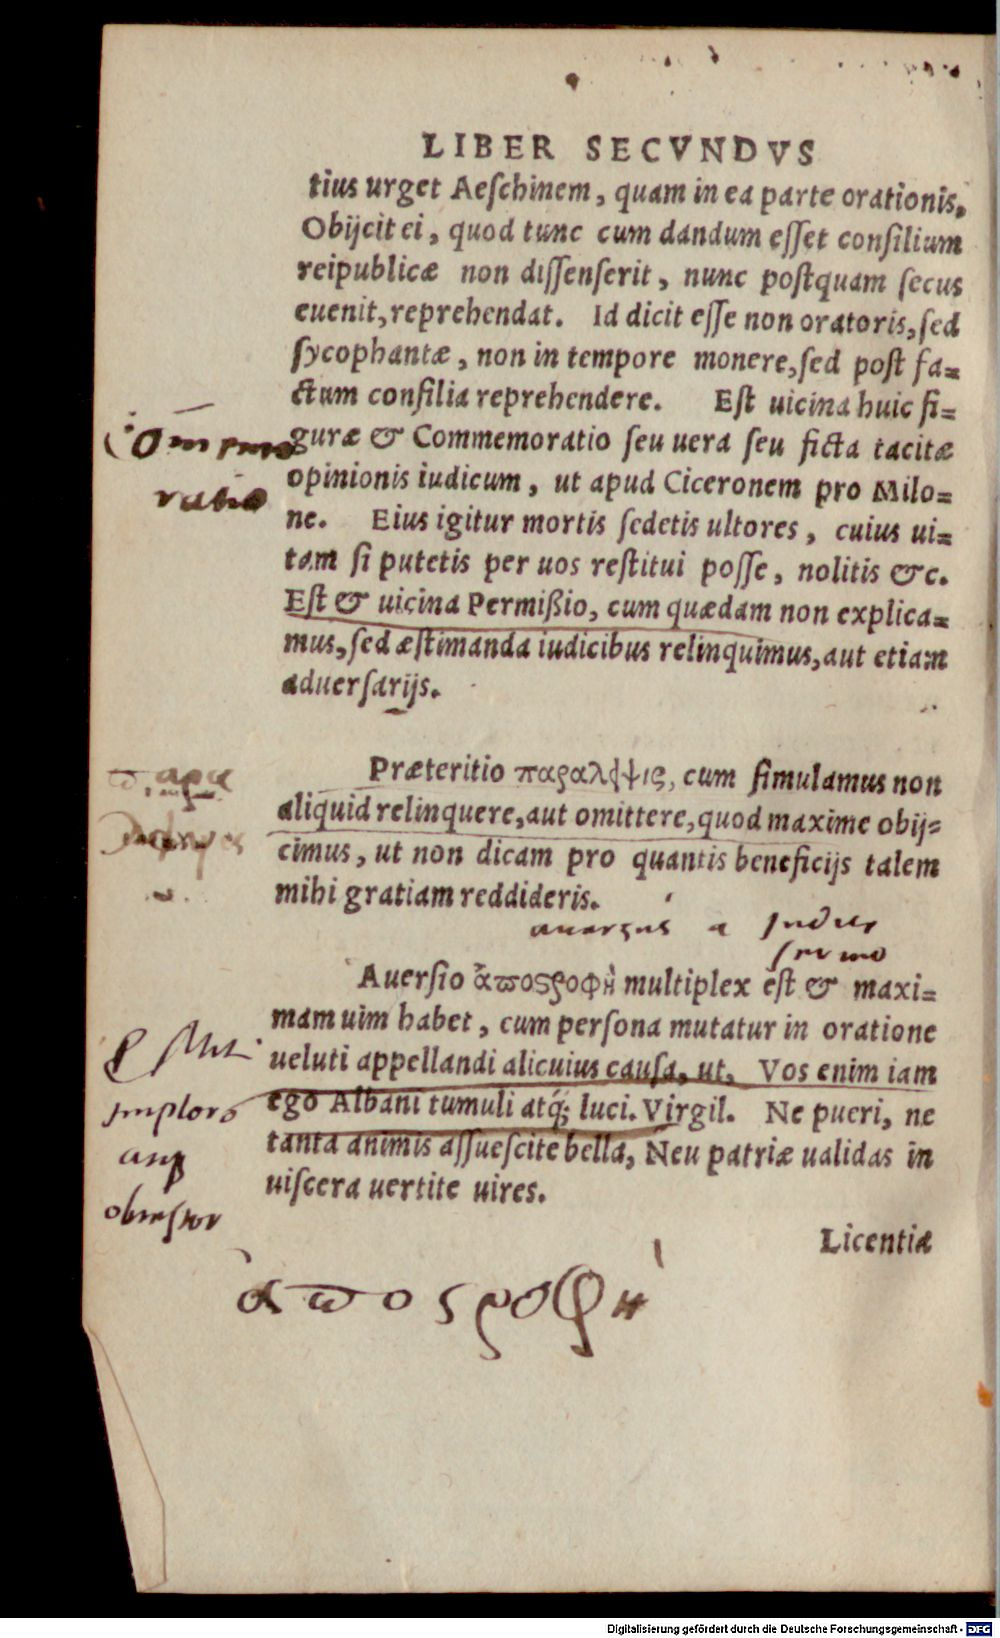 LIBER SECVNDVS
tius urget Aeſchinem, quam in ea parte orationis.
Obijcit ei, quod tunc cum dandum eſſet conſilium
reipublicæ non diſſenſerit, nunc poſtquam ſecus
euenit, reprehendat. Id dicit eſſe non oratoris, ſed
ſycophantæ, non in tempore monere, ſed poſt fa=
ctum conſilia reprehendere. Eſt uicina huic fi=
guræ & Commemoratio ſeu uera ſeu ficta tacitæ
opinionis iudicum, ut apud Ciceronem pro Milo=
ne. Eius igitur mortis ſedetis ultores, cuius ui=
tam ſi putetis per uos reſtitui poſſe, nolitis &c.
Eſt & uicina Permißio, cum quædam non explica=
mus, ſed æſtimanda iudicibus relinquimus, aut etiam
aduerſarijs.
Præteritio παραλήψις, cum ſimulamus non
aliquid relinquere, aut omittere, quod maxime obij=
cimus, ut non dicam pro quantis beneficijs talem
mihi gratiam reddideris.
a
ſermo
Auerſio ἀποϛροφὴ multiplex eſt & maxi=
mam uim habet, cum perſona mutatur in oratione
ueluti appellandi alicuius cauſa, ut, Vos enim iam
ego Albani tumuli atq́; luci. Virgil. Ne pueri, ne
tanta animis aſſueſcite bella, Neu patriæ ualidas in
uiſcera uertite uires.
Imploro
Licentiæ
αποϛροφὴ
Digitalisierung gefördert durch die Deutsche Forschungsgemeinschaft - DFG